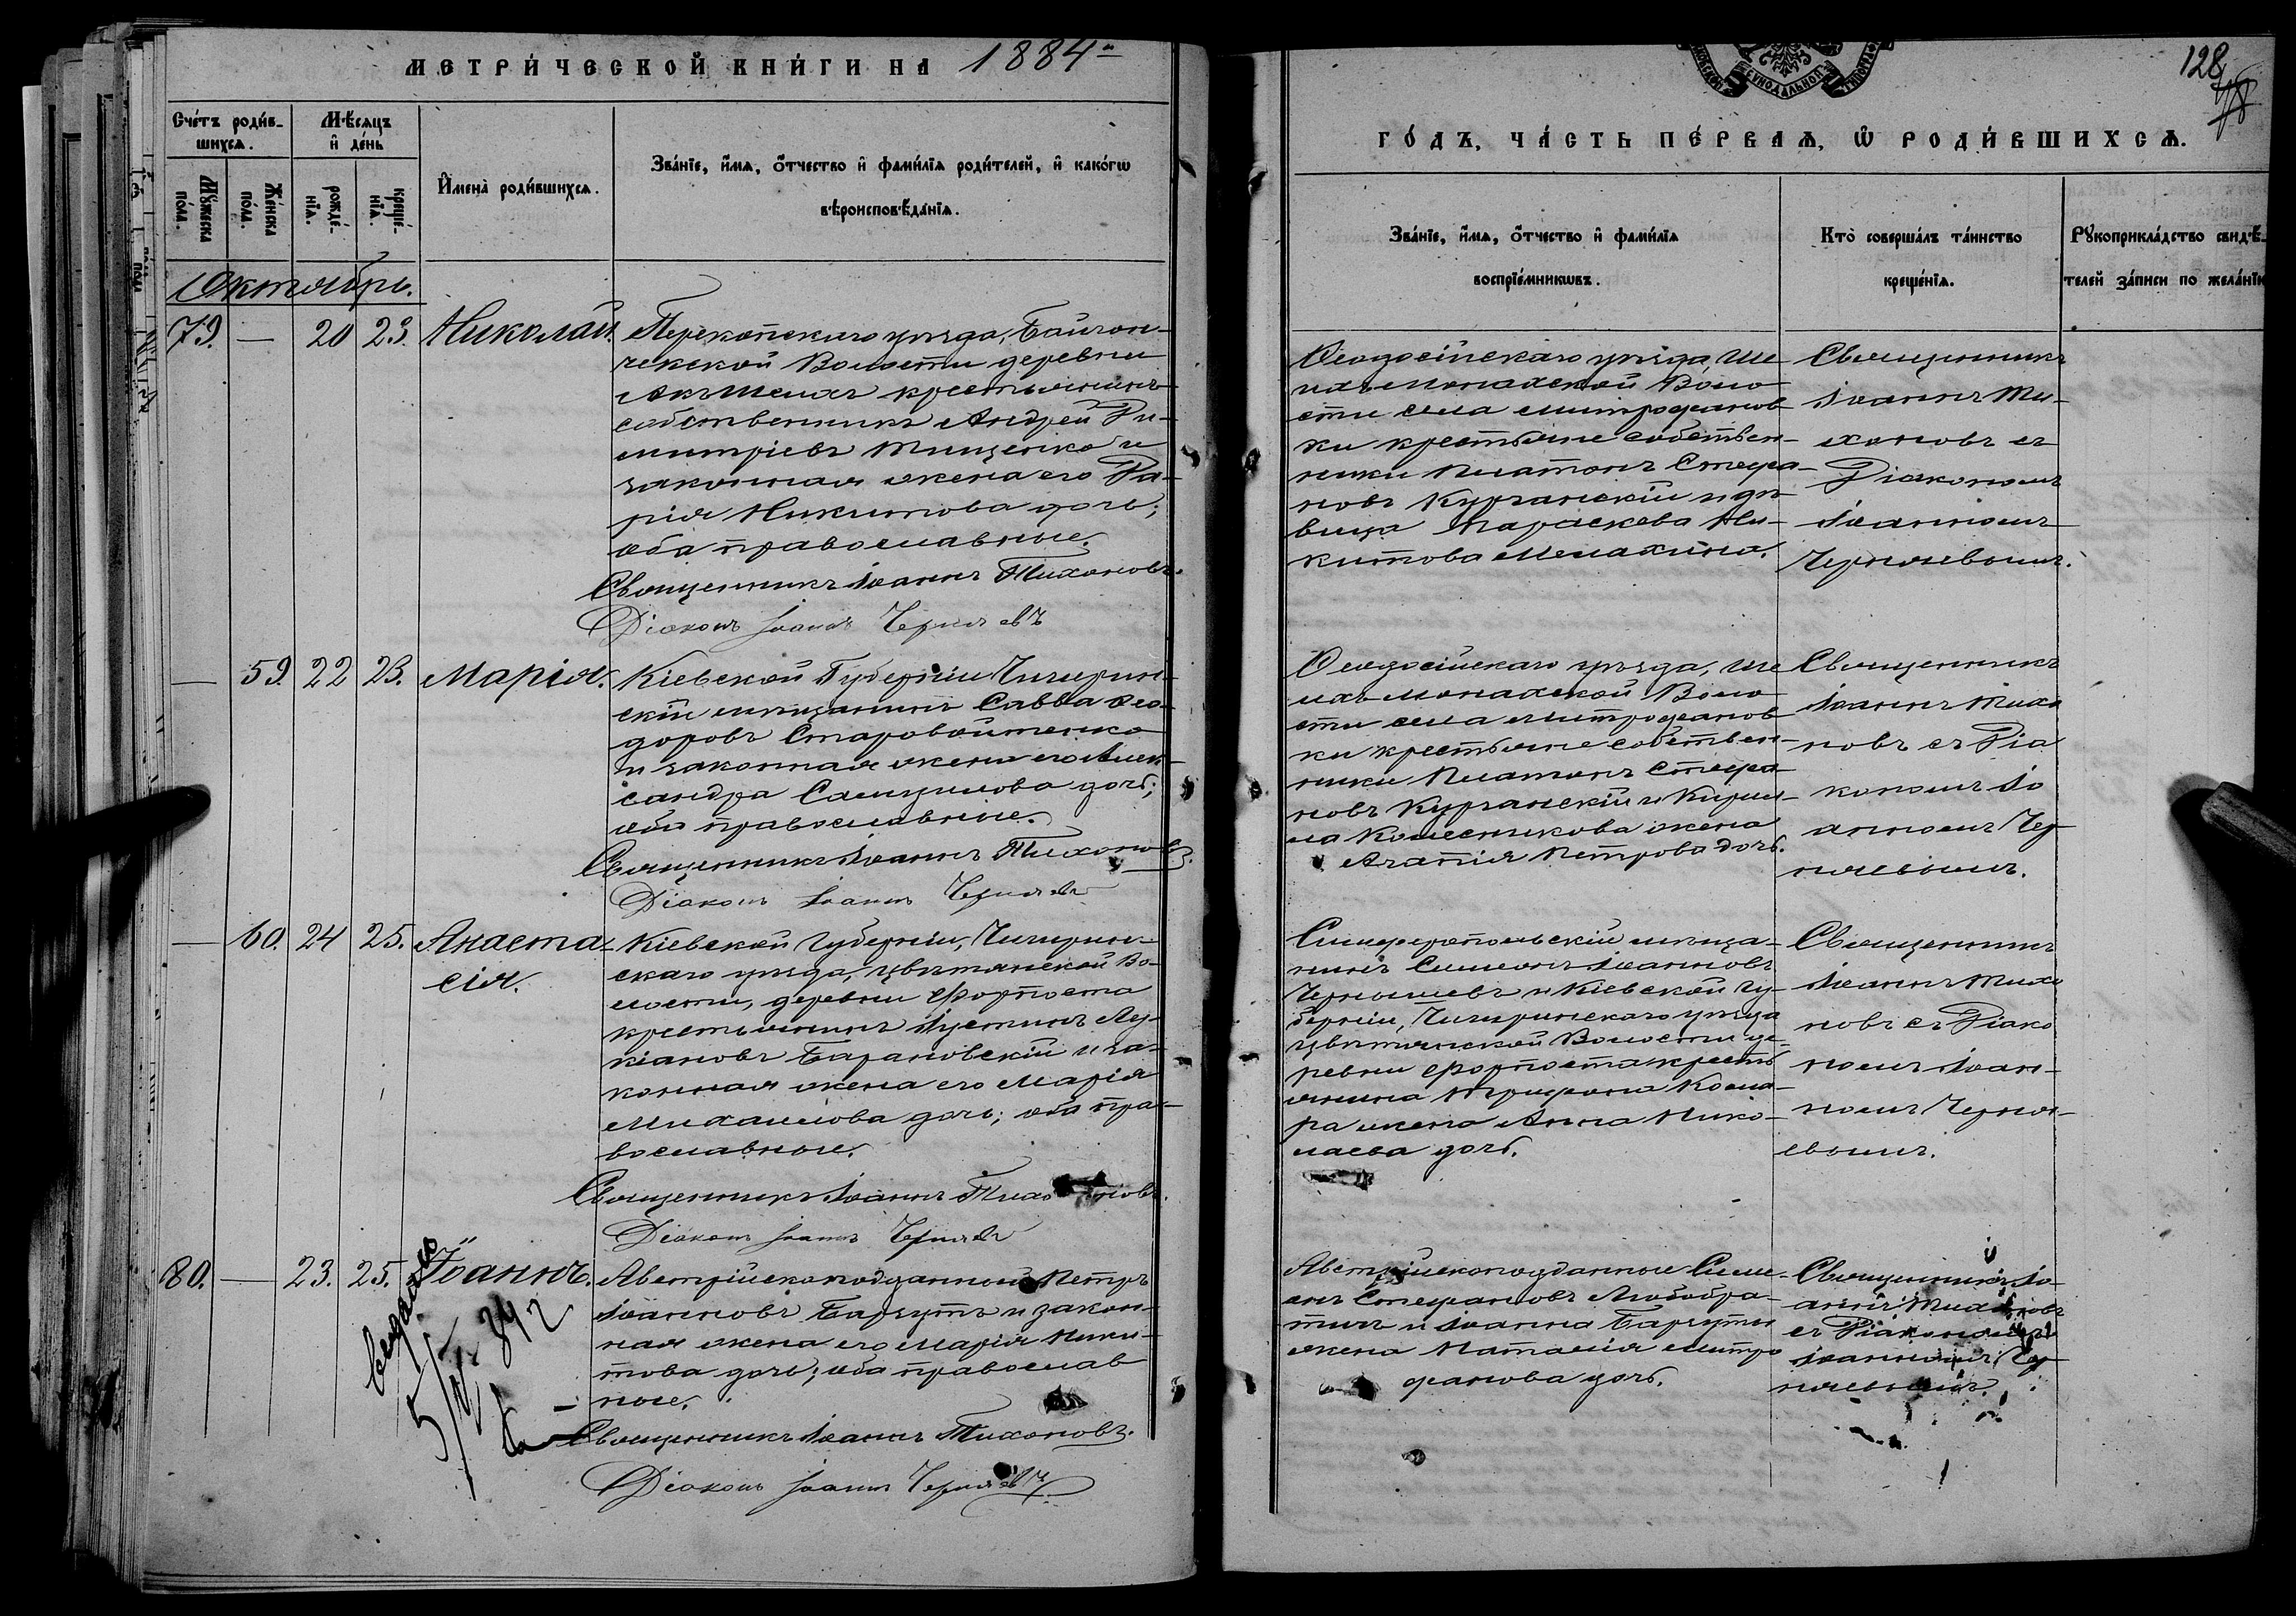 МЕТРИ́ЧЕСКОЙ КНИ́ГИ НА 1884-
Сче́тъ роди́в-
шихсѧ.
Мѣ́сѧцъ
и҆ де́нь
Мꙋ́жеска
по́ла.
Же́нска
по́ла.
рожде́-
нїѧ.
креще́-
нїѧ.
И҆мена̀ роди́вшихсѧ.
Зва́нїе, и҆́мѧ, ѻ҆́тчество и҆ фами́лїѧ роди́телей, и҆ како́гѡ
вѣроисповѣ́данїѧ.
Октябрь.
79. — 20 23. Николай.
Перекопскаго уѣзда, Байгон-
чекской Волости деревни
Акъ-Шеихъ крестьянинъ
собственникъ Андрей Ди-
митріевъ Тищенко и
законная жена его Да-
рія Никитова дочь;
оба православные.
Священникъ Іоаннъ Тихоновъ.
Діаконъ Іоаннъ Черняевъ
— 59. 22 23. Марія.
Кіевской Губерніи Чигирин-
скій мѣщанинъ Савва Ѳео-
доровъ Старовойтенко
и законная жена его Алек-
сандра Самуилова дочь;
оба православные.
Священникъ Іоаннъ Тихоновъ.
Діаконъ Іоаннъ Черняевъ
— 60. 24 25. Анаста-
сія.
Кіевской Губерніи, Чигирин-
скаго уѣзда, Цвѣтянской Во-
лости, деревни Форпоста
крестьянинъ Іустинъ Лу-
кіановъ Барановскій и за-
конная жена его Марія
Михаилова дочь; оба пра-
вославные.
Священникъ Іоаннъ Тихоновъ.
Діаконъ Іоаннъ Черняевъ
80. — 23. 25. Іоаннъ.
Австрійскоподданный Петръ
Іоанновъ Баргутъ и закон-
ная жена его Марія Ники-
това дочь; оба православ
ные.
Священникъ Іоаннъ Тихоновъ.
Діаконъ Іоаннъ Черняевъ
128
ГО́ДЪ, ЧА́СТЬ ПЕ́РВАѦ, Ѡ҆ РОДИ́ВШИХСѦ.
Зва́нїе, и҆́мѧ, ѻ҆́тчество и҆ фами́лїѧ
воспрїе́мникѡвъ.
Кто̀ соверша́лъ та́инство
креще́нїѧ.
Рꙋкоприкла́дство свидѣ́-
телей за́писи по жела́нїю
Ѳеодосійскаго уѣзда, Ше
ихъ-Монахской Воло
сти села Митрофанов
ки крестьяне собствен-
ники Платонъ Стефа-
новъ Курганскій и дѣ-
вица Параскева Ни-
китова Мелахина.
Священникъ
Іоаннъ Ти-
хоновъ съ
Діакономъ
Іоанномъ
Черняевымъ.
Ѳеодосійскаго уѣзда, Ше
ихъ-Монахской Воло
сти села Митрофанов
ки крестьяне собствен-
ники Платонъ Стефа-
новъ Курганскій и Кирил-
ла Колесникова жена
Агапія Петрова дочь.
Священникъ
Іоаннъ Тихо
новъ съ Діа
кономъ Іо
анномъ Чер
няевымъ.
Симферопольскій мѣща-
нинъ Симеонъ Іоанновъ
Чернышевъ и Кіевской Гу-
берніи, Чигиринскаго уѣзда
Цвѣтянской Волости де-
ревни Форпоста кресть
янина Трифона
жена Анна Нико-
лаева дочь.
Священникъ
Іоаннъ Тихо
новъ съ Діако
номъ Іоан-
номъ Черня-
евымъ.
Австрійскоподданные Симе-
онъ Стефановъ
и Іоанна Баргуты
жена Наталія Митро
фанова дочь.
Священникъ Іо-
аннъ Тихоновъ
съ Діакономъ
Іоанномъ Чер
няевымъ.